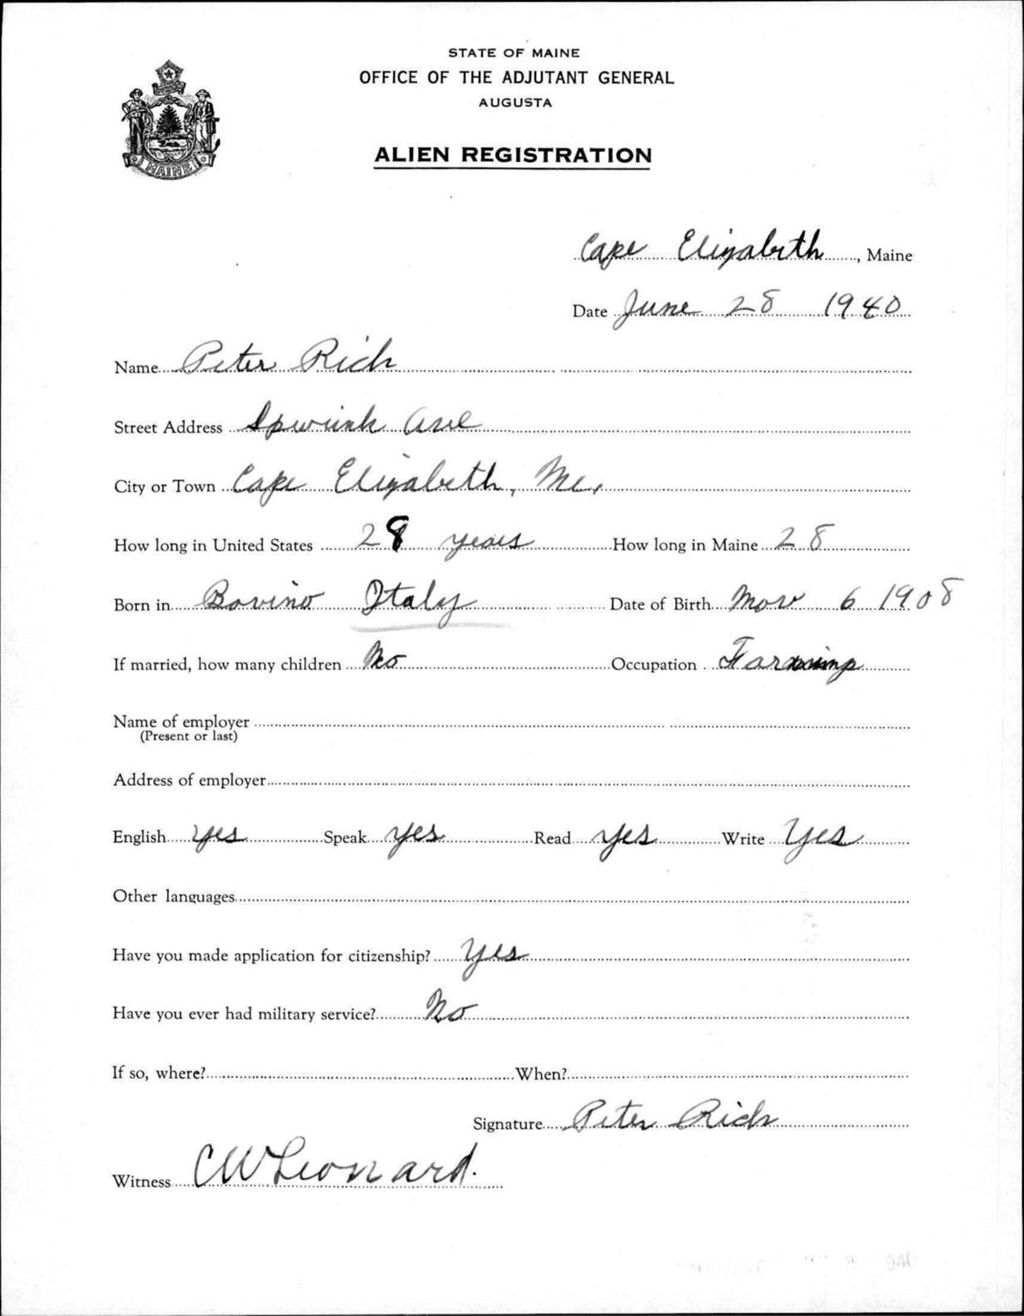 STATE OF MAINE
OFFICE OF THE ADJUTANT GENERAL
AUGUSTA
ALIEN REGISTRATION
MAINE
Cape Elizabeth, Maine
Date June 28 1940
Name Peter Rich
Street Address Spurwink Ave
City or Town Cape Elizabeth, Me.
How long in United States 28 years How long in Maine 28
Born in Bovino Italy Date of Birth Nov 6 1908
If married, how many children No Occupation Farming
Name of employer
(Present or last)
Address of employer
English yes Speak yes Read yes Write Yes
Other languages
Have you made application for citizenship? Yes
Have you ever had military service? No
If so, where? When?
Signature Peter Rich
Witness CW Leonard.